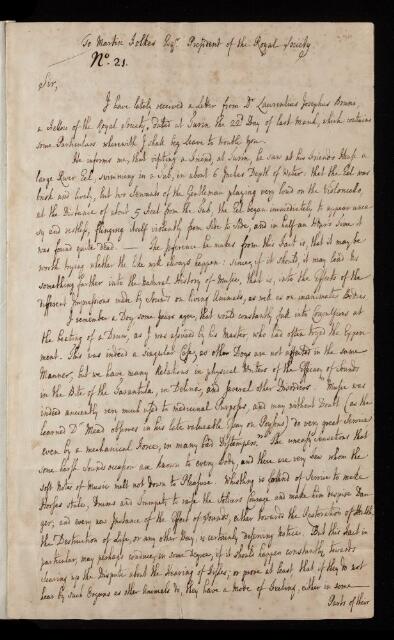 To Martin Folkes Esqr. President of the Royal Society
No. 21.
Sir,
I have lately received a Letter from Dr. Laurentius Josephus Bruni,
a Fellow of the Royal Society, dated at Turin the 22d Day of last March, which contains
some Particulars wherewith I shall beg Leave to trouble You.
He informs me, that visiting a Friend, at Turin, he saw at his Friend's House a
large River Eel, swimming in a Tub, in about 6 Inches Depth of Water: that the Eel was
brisk and lively, but two Servants of the Gentleman playing very loud on the Violoncello,
at the Distance of about 5 Feet from the Tub, the Eel began immediately to appear uneasy
and restless, flinging itself violently from Side to Side, and in half an Hour's Time it
was found quite dead. — The Inference he makes from this Fact is, that it may be
worth trying whether the like will always happen: since, if it should, it may lead us
something farther into the natural History of Music, that is, into the Effects of the
different Impressions made by Sounds on living Animals, as well as on inanimate Bodies.
I remember a Dog some years agoe, that would constantly fall into Convulsions at
the beating of a Drum, as I was assured by his Master, who had often tryed the Experi-
ment. This was indeed a singular Case, as other Dogs are not affected in the same
Manner; but we have many Relations in physical Writers of the Efficacy of Sounds
in the Bite of the Tarantula, in and several other Disorders. Music was
indeed anciently very much used to medicinal Purposes, and may without Doubt (as the
learned Dr. Mead observes in his late valuable Essay on Poysons) do very great Service
even by a mechanical Force, in many bad Distempers. The uneasy Sensations that
some harsh Sounds occasion are known to every body, and there are very few whom the
soft Notes of Music will not Down to Pleasure. Whistling is found of Service to make
Horses stale; Drums and Trumpets to raise the Soldiers Courage and make him despise Dan-
ger; and every new Instance of the Effect of Sounds, either towards the Restoration of Health,
the Destruction of Life, or any other Way, is certainly deserving Notice. But this Fact in
particular, may perhaps conduce, in some degree, if it should happen constantly, towards
clearing up the Dispute about the Hearing of Fishes; or prove at least that if they do not
hear by such Organs as other Animals do, they have a Mode of Feeling, either in some
Parts of their